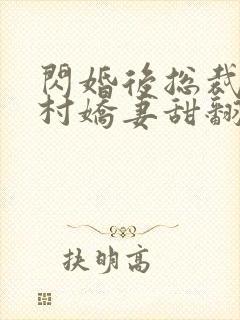 閃婚後総裁
村嬌妻甜翻
抉明高